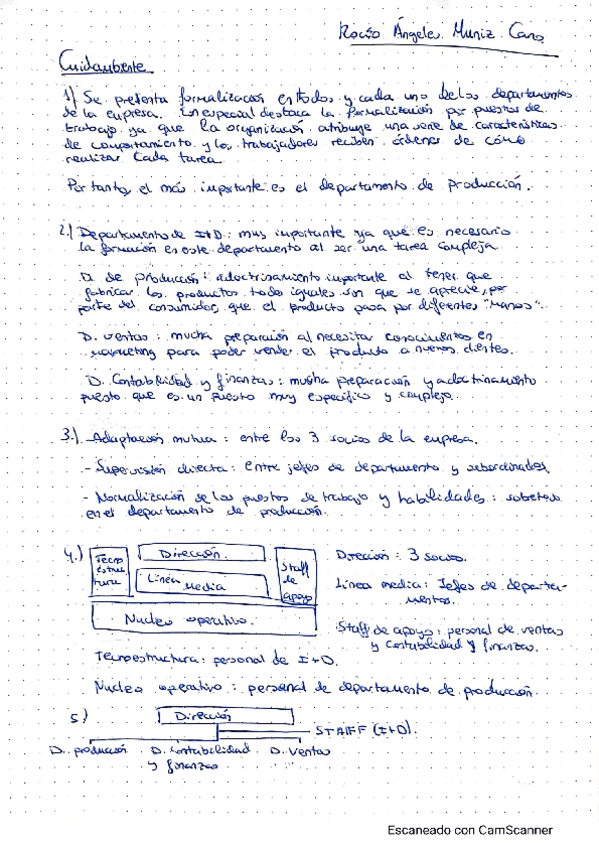 Rocío Ángeles Muniz Cano
Cuidambente
1) Se presenta formalización en todos y cada uno de los departamentos
de la empresa. En especial destaca la formalización por puestos de
trabajo, ya que la organización atribuye una serie de características
de comportamiento y los trabajadores reciben órdenes de cómo
realizar cada tarea.
Por tanto, el más importante es el departamento de producción.
2.) Departamento de I+D: muy importante ya que es necesario
la formación en este departamento al ser una tarea compleja
D. de producción: adoctrinamiento importante al tener que
fabricar los productos todo iguales sin que se aprecie, por
parte del consumidor, que el producto pasa por diferentes "manos".
D. ventas: mucha preparación al necesitar conocimientos en
marketing para poder vender el producto a nuevos clientes.
D. Contabilidad y finanzas: mucha preparación y adoctrinamiento
puesto que es un puesto muy específico y complejo.
3.) Adaptación mutua: entre los 3 socios de la empresa.
- Supervisión directa: entre jefes de departamento y subordinados
- Normalización de los puestos de trabajo y habilidades: sobretodo
en el departamento de producción.
4.)
Tecno
estruc
tura
Dirección.
Línea
media
Staff
de
apoyo
Nucleo operativo.
Dirección: 3 socios.
Línea media: Jefes de departa-
mentos.
Staff de apoyo: personal de ventas
y contabilidad y finanzas.
Tecnoestructura: personal de I+D.
Nucleo operativo: personal de departamento de producción.
5)
Dirección
STAFF (I+D).
D. producción D. Contabilidad D. Ventas
y finanzas
Escaneado con CamScanner